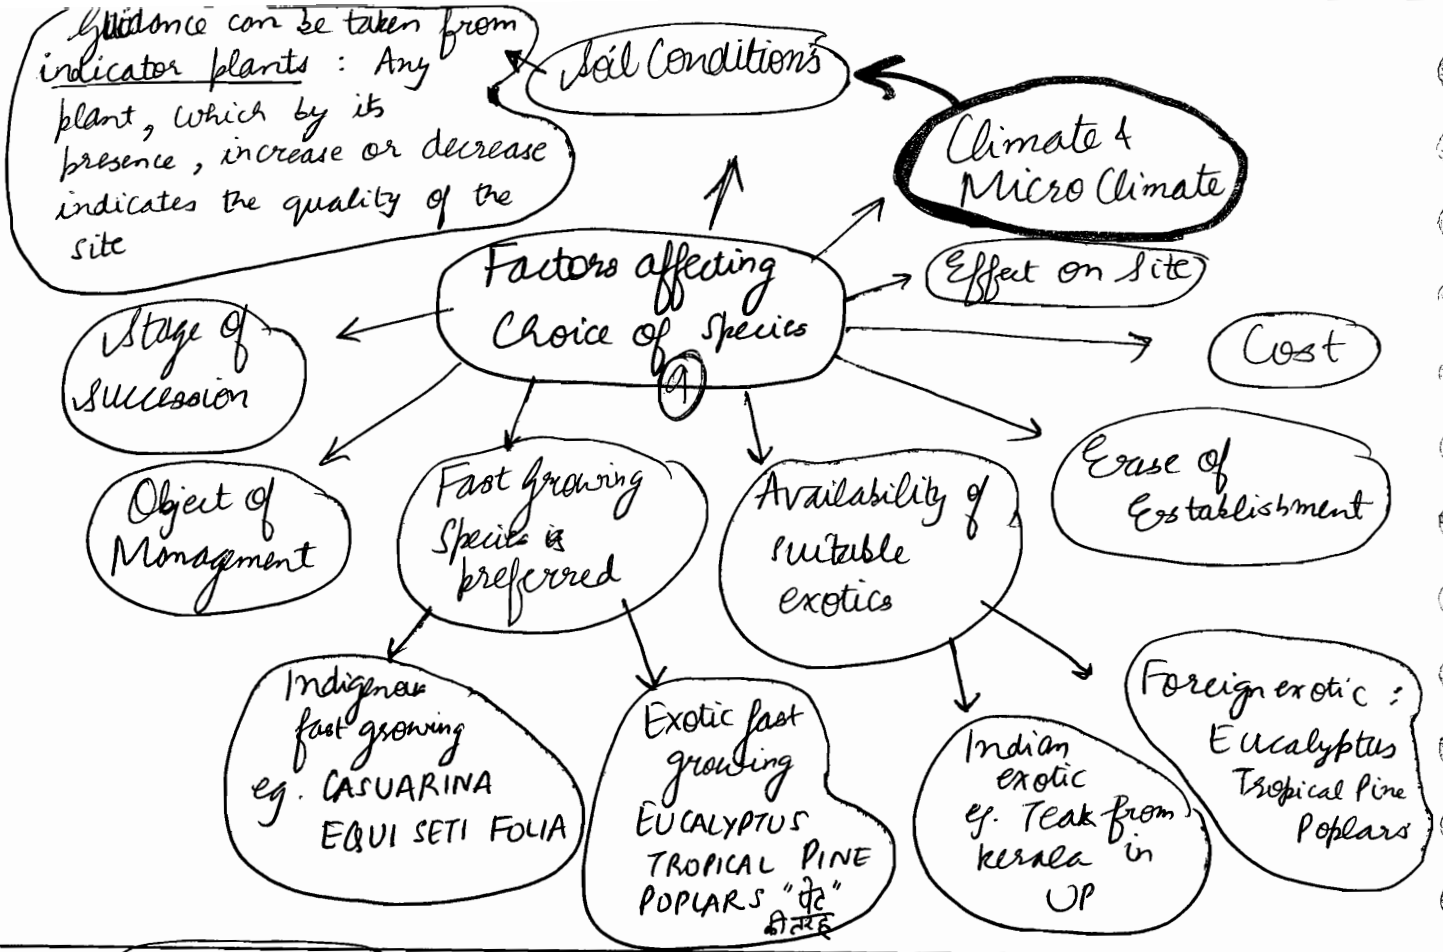 Guidance can be taken from
indicator plants : Any
plant, which by its
presence, increase or decrease
indicates the quality of the
site
Soil Conditions
Climate &
Micro Climate
Factors affecting
Choice of species
9
Effect on site
Cost
Stage of
succession
Object of
Management
Fast Growing
Species is
preferred
Availability of
suitable
exotics
Erase of
Establishment
Indigenous
fast growing
eg. CASUARINA
EQUISETIFOLIA
Exotic fast
growing
EUCALYPTUS
TROPICAL PINE
POPLARS "पेट"
की तरह
Indian
exotic
eg. Teak from
kerala in
UP
Foreign exotic :
Eucalyptus
Tropical Pine
Poplars